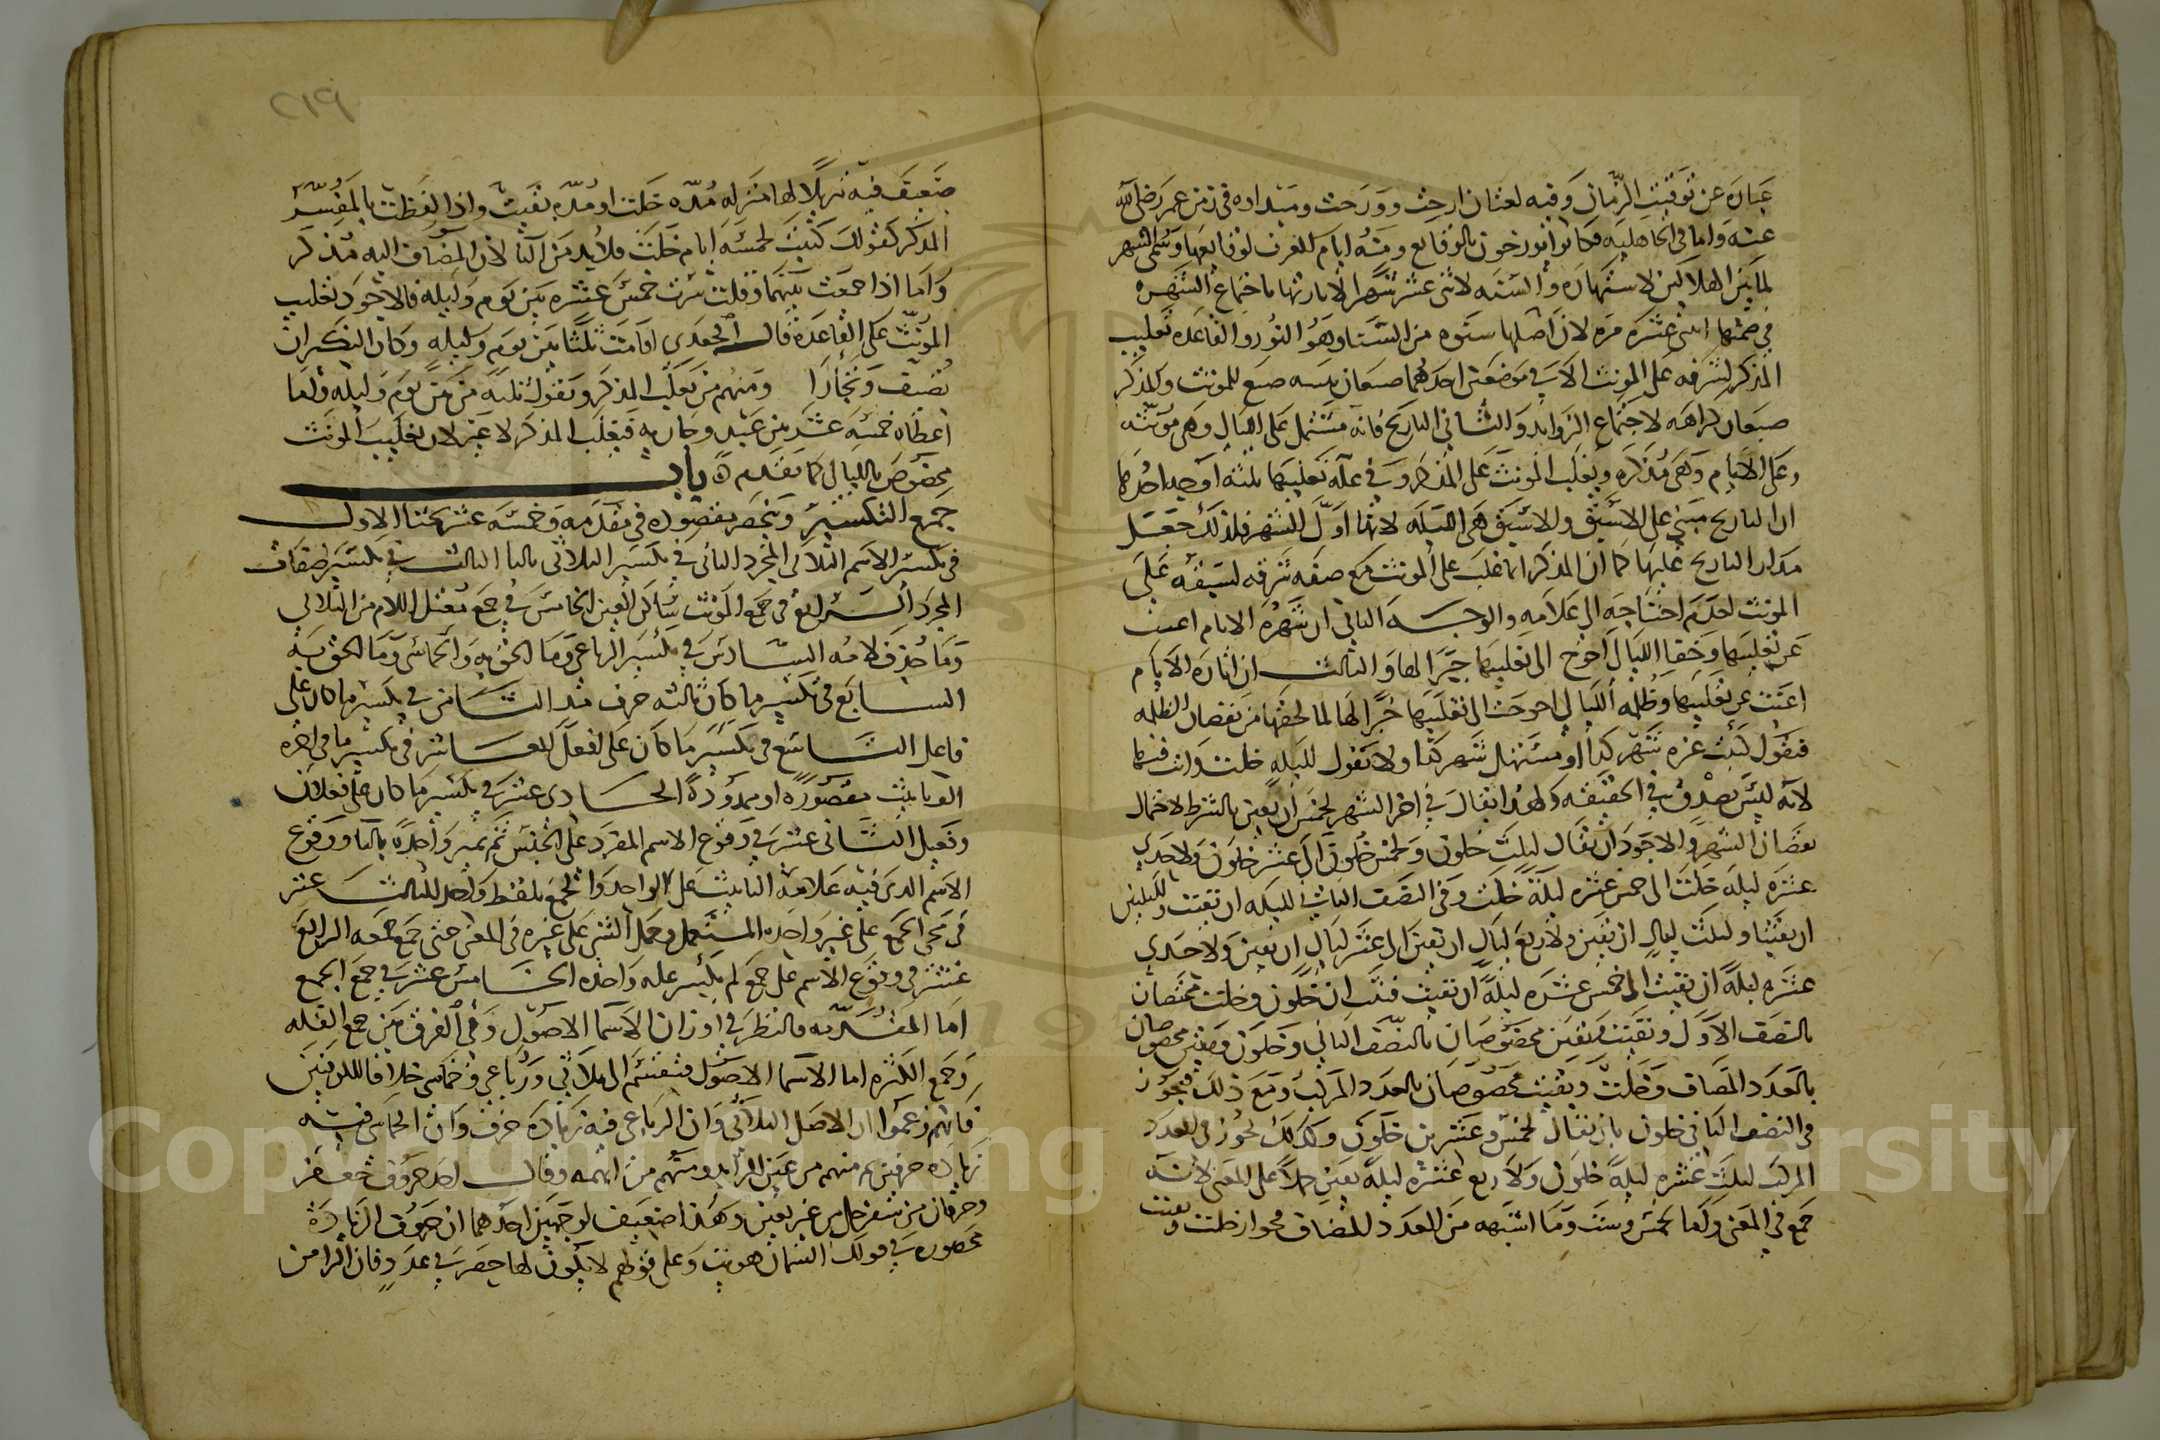 عبارة عن توقيت الزمان وفيه لغتان ارخت وورخت ومبداوه في زمن عمر رضي الله
عنه واما في الجاهلية فكانوا يورخون بالوقايع ومنه ايام العرب لوقايعها وسمي الشهر
لما بين الهلالين لاشتهاره والسنة لاثنى عشر شهرا
في ضمنها اثنى عشرة مرة لان اصلها سنوه من السنا وهو النور والقاعدة تغليب
المذكر لشرفه على المونث الا في موضعين احدهما ضبعان تثنية ضبع للمونث وللمذكر
ضبعان كراهة لاجتماع الزوايد والثاني التاريخ فانه مشتمل على الليالي وهي مونثة
وعلى الايام وهي مذكرة ويغلب المونث على المذكر وفي علة تغليبها ثلثة اوجه احدها
ان التاريخ مبني على الاسبق والاسبق هي الليلة لانها اول الشهر فلذلك جعل
مدار التاريخ عليها كما ان المذكر انما غلب على المونث مع صفة شرفه لسبقه على
المونث لعدم احتياجه الى علامة والوجه الثاني ان شهرة الايام اغنت
عن تغليبها وخفا الليالي احوج الى تغليبها جبرا لها والثالث ان انارة الايام
اغنت عن تغليبها وظلمة الليالي احوجت الى تغليبها جبرا لها لما لحقها من نقصان الظلمة
فتقول كتبت غرة شهر كذا او مستهل شهر كذا ولا تقول لليلة خلت وانت فيها
لانه ليس بصدق في الحقيقة ولهذا يقال في اخر الشهر لخمس ان بقين بالشرط لاحتمال
نقصان الشهر والاجود ان يقال لثلث خلون ولخمس خلون الى عشر خلون ولاحدى
عشرة ليلة خلت الى خمس عشرة ليلة خلت وفي النصف الثاني لليلة ان بقيت ولليلتين
ان بقيتا ولثلث ليال ان بقين ولاربع ليال ان بقين الى عشر ليال ان بقين ولاحدى
عشرة ليلة ان بقيت الى خمس عشرة ليلة ان بقيت فثبت ان خلون وخلت مختصان
بالنصف الاول وبقيت وبقين مخصوصان بالنصف الثاني وخلون وبقين مخصوصان
بالعدد المضاف وخلت وبقيت مخصوصان بالعدد المركب ومع ذلك فيجوز
في النصف الثاني خلون بان يقال لخمس وعشرين خلون وكذلك يجوز في العدد
المركب لثلث عشرة ليلة خلون ولاربع عشرة ليلة بقين حملا على المعنى لانه
جمع في المعنى وكما لخمس وست وما اشبهه من العدد المضاف فجواز خلت وبقيت
٢١٩
ضعيف فيه تنزيلا لها منزلة مدة خلت او مدة بقيت واذا لفظت بالمفسر
المذكر كقولك كتبت لخمسة ايام خلت فلابد من التا لان المضاف اليه مذكر
واما اذا جمعت بينهما وقلت سرت خمس عشرة بين يوم وليلة فالاجود تغليب
المونث على القاعدة قال الجعدي اقامت ثلثا بين يوم وليلة وكان النكير ان
تضيف وتجارا ومنهم من يغلب المذكر ويقول ثلثة من بين يوم وليلة ولما
اعطاه خمسة عشر بين عبد وجارية فيغلب المذكر لا غير لان تغليب المونث
مخصوص بالليالي كما تقدم باب
جمع التكسير وينحصر مقصوده في مقدمة وخمسة عشر بحثا الاول
في تكسير الاسم الثلاثي المجرد الثاني في تكسير الثلاثي بالتا الثالث في تكسير صفات
المجرد الرابع في جمع المونث ساكن العين الخامس في جمع معتل اللام من الثلاثي
وما حذف لامه السادس في تكسير الرباعي وما الحق به والخماسي وما الحق به
السابع في تكسير ما كان ثالثه حرف مد الثامن في تكسير ما كان على
فاعل التاسع في تكسير ما كان على افعل العاشر في تكسير ما في اخره
الف تانيث مقصورة او ممدودة الحادي عشر في تكسير ما كان على فعلان
وفعيل الثاني عشر في وقوع الاسم المفرد على الجنس ثم يميز واحده بالتا ووقوع
الاسم الذي فيه علامة التانيث على الواحد والجمع بلفظ واحد الثالث عشر
في مجي الجمع على غير واحده المستعمل وحمل الشي على غيره في المعنى حتى جمع جمعه الرابع
عشر في وقوع الاسم على جمع لم يكسر عليه واحده الخامس عشر في جمع الجمع
اما المقدمة فالنظر في اوزان الاسما الاصول وفي الفرق بين جمع القلة
وجمع الكثرة اما الاسما الاصول فتنقسم الى ثلاثي ورباعي وخماسي خلافا للكوفيين
فانهم زعموا ان الاصل الثلاثي وان الرباعي فيه زيادة حرف وان الخماسي فيه
زيادة حرفين ثم منهم من عين الزايد ومنهم من ابهمه وقال احد حروف جعفر
وحرفان من سفرجل من غير تعيين وهذا ضعيف لوجهين احدهما ان حروف الزيادة
محصورة في قولك السمان هويت وعلى قولهم لا يكون لها حصر في عدد وفان الزامن